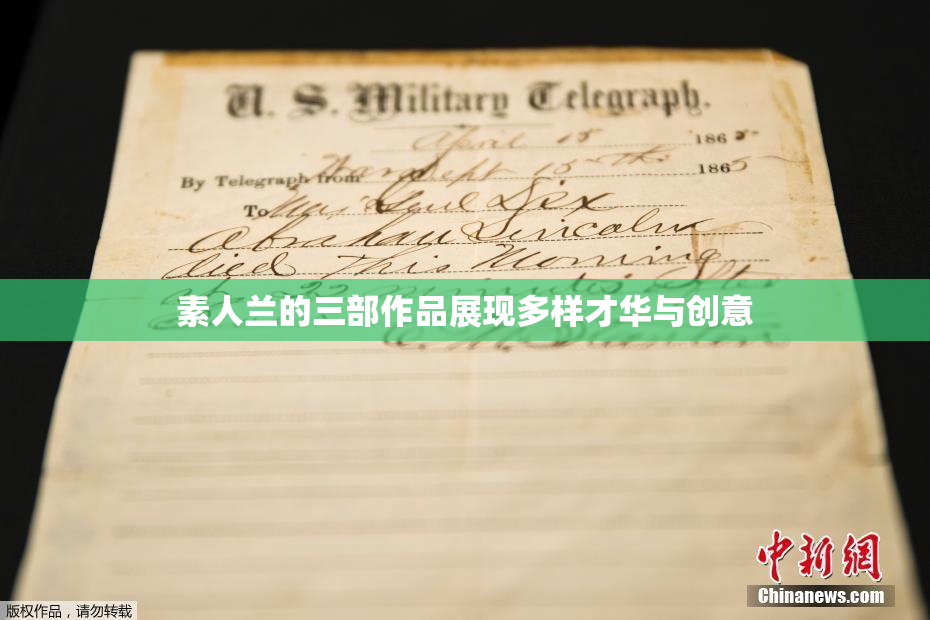 U. S. Military Telegraph.
April 15 1865
By Telegraph from War Dept 15th 1865
To Maj Genl Dix
Abraham Lincoln
died This Morning
at 22 minutes after
素人兰的三部作品展现多样才华与创意
E. M. Stanton
中新网
Chinanews.com
版权作品，请勿转载